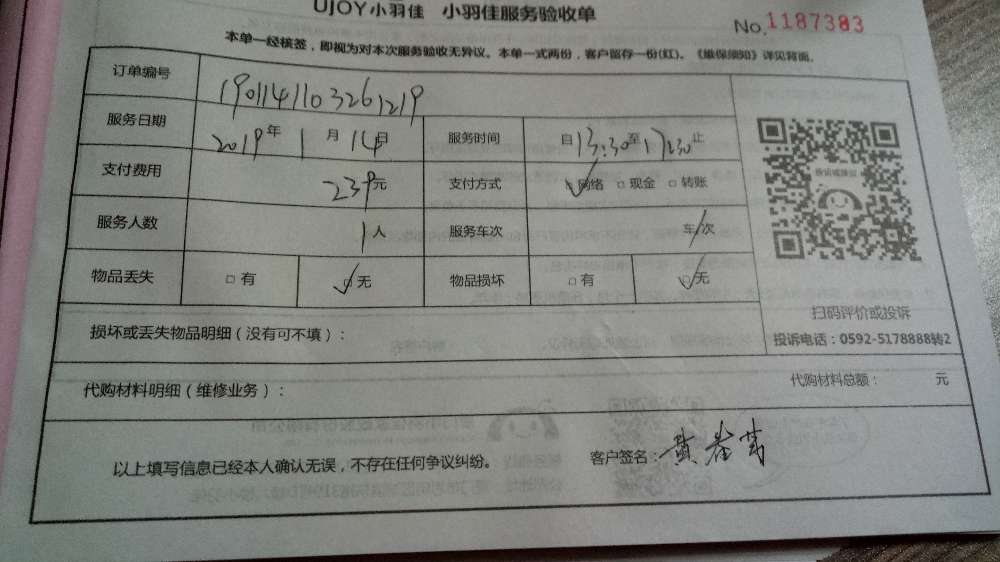 UJOY小羽佳 小羽佳服务验收单
No.1187383
本单一经核签，即视为对本次服务验收无异议。本单一式两份，客户留存一份(红)。《维保须知》详见背面。
订单编号 1901141103261219
服务日期 2019年 1月 14日 服务时间 自13:30至17:30止
支付费用 239元 支付方式 ☑网络 □现金 □转账
服务人数 1人 服务车次 车/次
物品丢失 □有 ☑无 物品损坏 □有 ☑无
扫码评价或投诉
投诉电话：0592-5178888转2
损坏或丢失物品明细（没有可不填）：
代购材料明细（维修业务）： 代购材料总额： 元
以上填写信息已经本人确认无误，不存在任何争议纠纷。 客户签名：黄